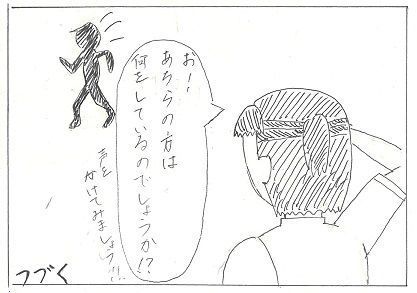 お！
あちらの方は
何をしているのでしょうか!?
声を
かけてみましょう!!
つづく